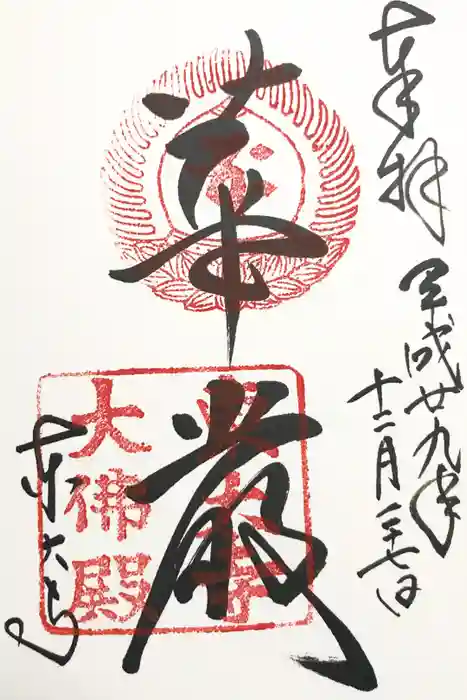 奉拝
平成廿九年
十二月二十七日
華厳
東大寺
東大寺
大佛殿